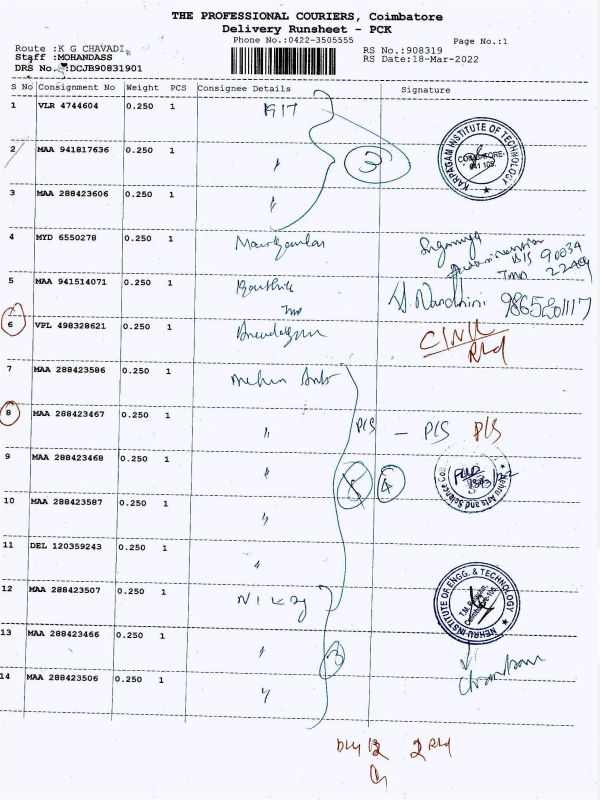 THE PROFESSIONAL COURIERS, Coimbatore
Delivery Runsheet - PCK
Phone No.:0422-3505555
Page No.:1
Route :K G CHAVADI
RS No.:908319
Staff :MOHANDASS
RS Date:18-Mar-2022
DRS No. :DCJB90831901
S No Consignment No Weight PCS Consignee Details Signature
1 VLR 4744604 0.250 1 KIT
2 MAA 941817636 0.250 1 〃 3
KARPAGAM INSTITUTE OF TECHNOLOGY
COIMBATORE-
641 105.
3 MAA 288423606 0.250 1 〃
4 MYD 6550278 0.250 1
5 MAA 941514071 0.250 1
Nandhini 9865201117
6 VPL 498328621 0.250 1
7 MAA 288423586 0.250 1
8 MAA 288423467 0.250 1 〃 P/S - P/S P/S
9 MAA 288423468 0.250 1 〃 5 4
Nehru Arts and Science
10 MAA 288423587 0.250 1 〃
11 DEL 120359243 0.250 1 〃
12 MAA 288423507 0.250 1
NEHRU INSTITUTE OF ENGG. & TECHNOLOGY
13 MAA 288423466 0.250 1 〃 3
14 MAA 288423506 0.250 1 〃
2 Rtd